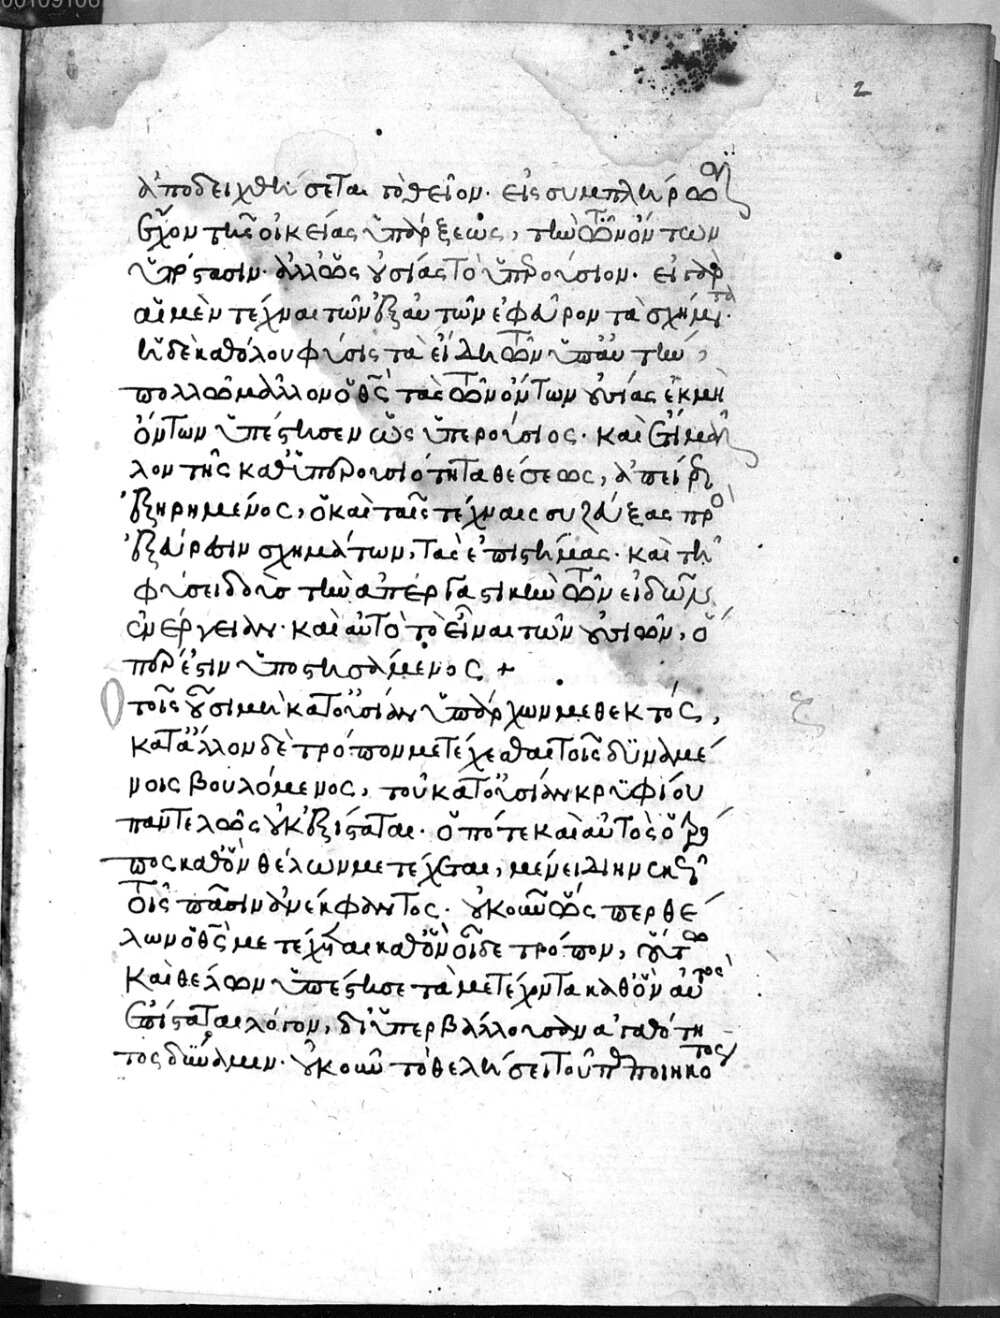 2
ἀποδειχθήσεται τὸ θεῖον· εἰς συμπλήρωσιν
ἔχον τῆς οἰκείας ὑπάρξεως, τὴν τῶν ὄντων
ὑπόστασιν· ἀλλ' ὡς οὐσίας τὸ ὑπερούσιον· εἰ γὰρ
αἱ μὲν τέχναι τῶν ἐξ αὐτῶν ἐφεῦρον τὰ σχήματα·
ἡ δὲ καθόλου φύσις τὰ εἴδη τῶν ὑπ' αὐτὴν,
πολλῷ μᾶλλον ὁ θεὸς τὰς τῶν ὄντων οὐσίας ἐκ μὴ
ὄντων ὑπέστησεν ὡς ὑπερούσιος· καὶ
λον τῆς καθ' ὑπερουσιότητα θέσεως, ἀπείρως
ἐξηρημένος, ὁ καὶ ταῖς τέχναις συζεύξας πρὸς
ἐξεύρεσιν σχημάτων, τὰς ἐπιστήμας· καὶ τῇ
φύσει δοὺς τὴν ἀπεργαστικὴν τῶν εἰδῶν
ἐνέργειαν· καὶ αὐτὸ τὸ εἶναι τῶν οὐσιῶν, ὅ
περ ἐστὶν ὑποστησάμενος +
Ὁ τοῖς οὖσι μὴ κατ' οὐσίαν ὑπάρχων μεθεκτός, ζ
κατ' ἄλλον δὲ τρόπον μετέχεσθαι τοῖς δυναμέ
νοις βουλόμενος, τοῦ κατ' οὐσίαν κρυφίου
παντελῶς οὐκ ἐξίσταται· ὁπότε καὶ αὐτὸς ὁ τρό
πος καθ' ὃν θέλων μετέχεται, μένει διηνεκῶς
τοῖς πᾶσιν ἀνέκφαντος· οὐκοῦν ὥσπερ θέ
λων ὁ θεὸς μετέχεται καθ' ὃν οἶδε τρόπον, οὕτω
καὶ θέλων ὑπέστησε τὰ μετέχοντα καθ' ὃν αὐτὸς
ἐπίσταται λόγον, δι' ὑπερβάλλουσαν ἀγαθότη
τος δύναμιν· οὐκοῦν τὸ θελήσει τοῦ πεποιηκότος